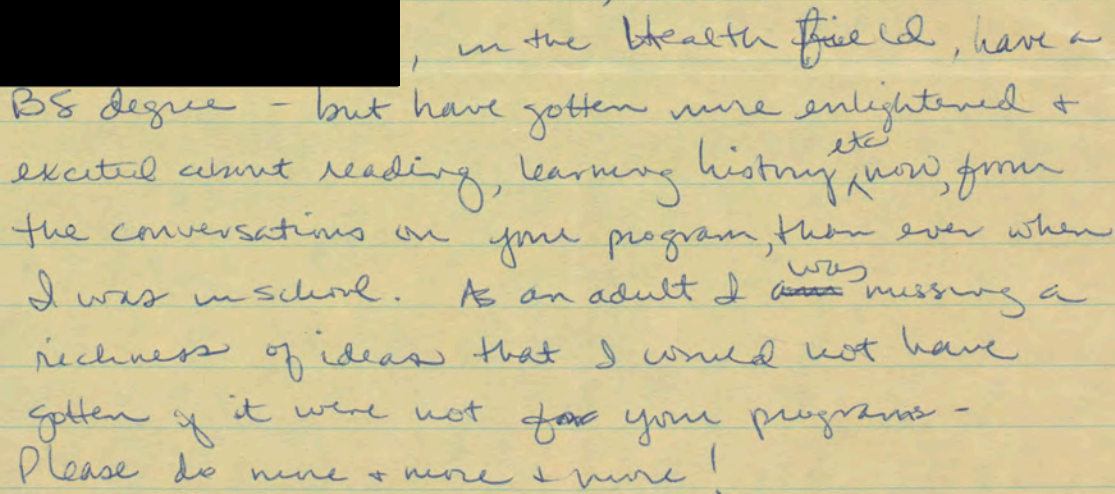 , in the Health field, have a
BS degree - but have gotten more enlightened +
excited about reading, learning history etc now, from
the conversations on your program, than ever when
I was in school. As an adult I am was missing a
richness of ideas that I would not have
gotten if it were not for your programs -
Please do more + more + more!